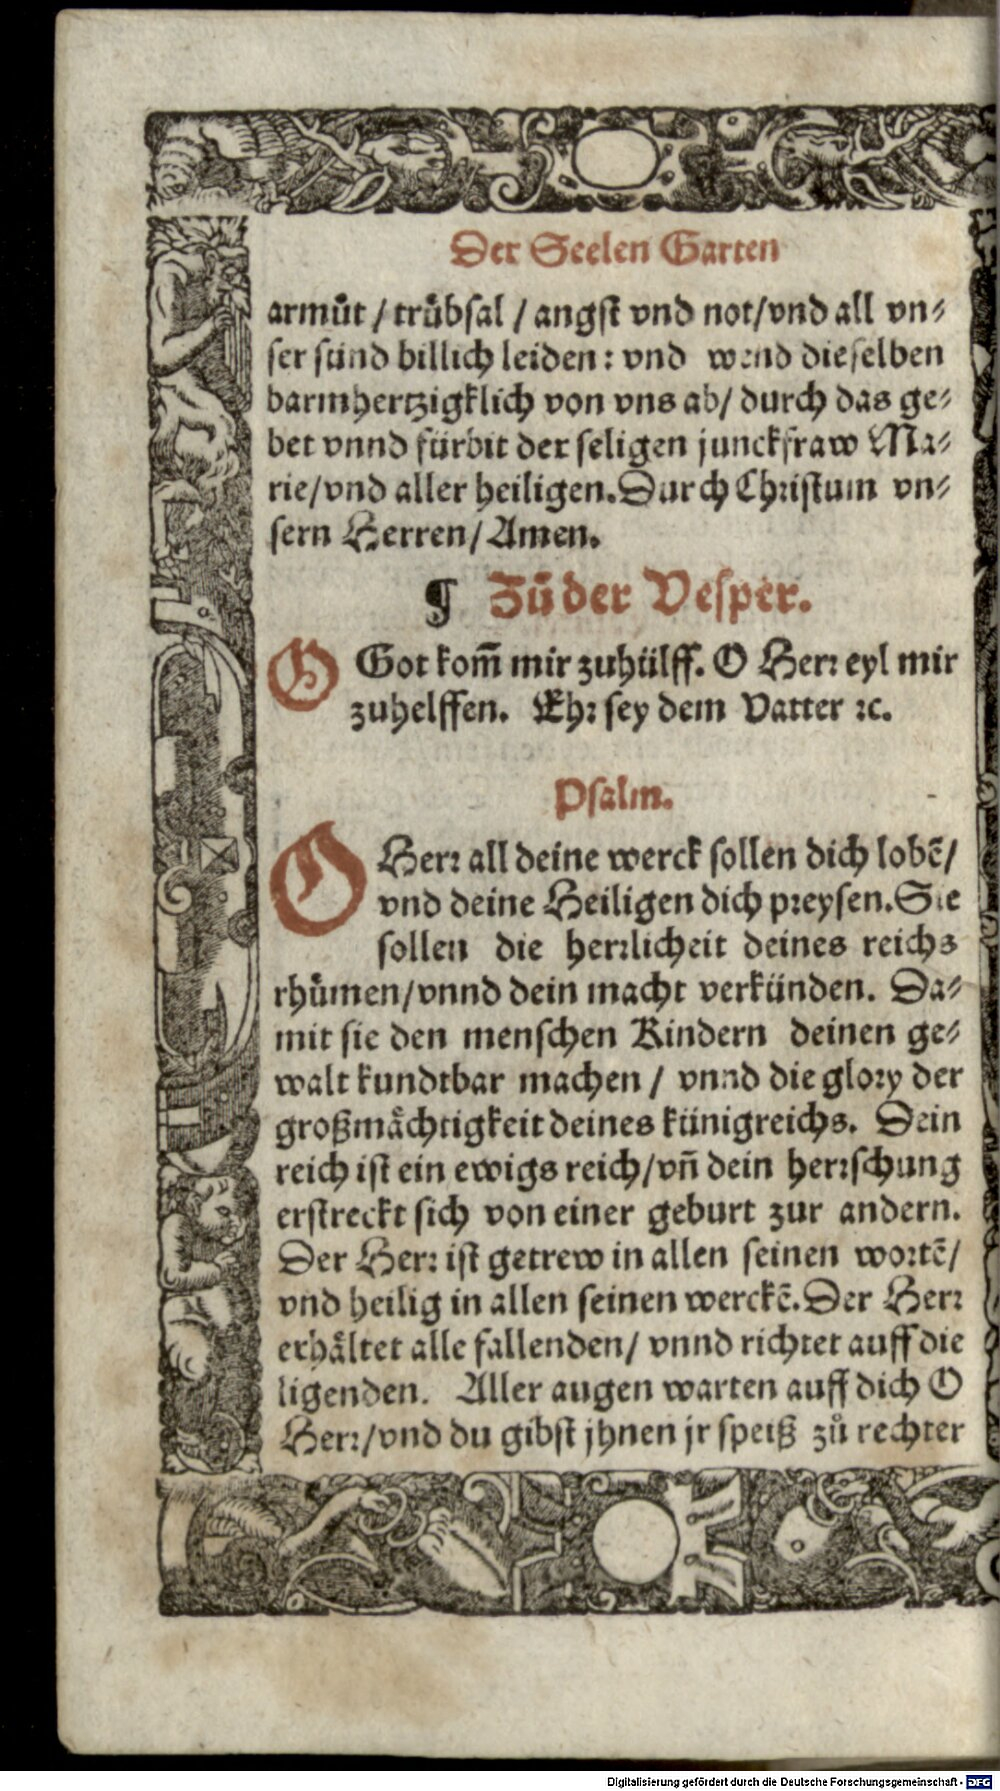 Der Seelen Garten
armůt / trůbsal / angst vnd not/vnd all vn⸗
ser sünd billich leiden: vnd wend dieselben
barmhertzigklich von vns ab/ durch das ge⸗
bet vnnd fürbit der seligen junckfraw Ma⸗
rie/vnd aller heiligen. Durch Christum vn⸗
sern Herren/ Amen.
¶ Zů der Vesper.
O Got kom̃ mir zuhülff. O Herr eyl mir
zuhelffen. Ehr sey dem Vatter ꝛc.
Psalm.
O Herr all deine werck sollen dich lobẽ/
vnd deine Heiligen dich preysen. Sie
sollen die herrlicheit deines reichs
rhůmen/vnnd dein macht verkünden. Da⸗
mit sie den menschen Kindern deinen ge⸗
walt kundtbar machen / vnnd die glory der
großmaͤchtigkeit deines künigreichs. Dein
reich ist ein ewigs reich/vñ dein herrschung
erstreckt sich von einer geburt zur andern.
Der Herr ist getrew in allen seinen wortẽ/
vnd heilig in allen seinen werckẽ. Der Herr
erhaͤltet alle fallenden/ vnnd richtet auff die
ligenden. Aller augen warten auff dich O
Herr/vnd du gibst jhnen jr speiß zů rechter
Digitalisierung gefördert durch die Deutsche Forschungsgemeinschaft - DFG